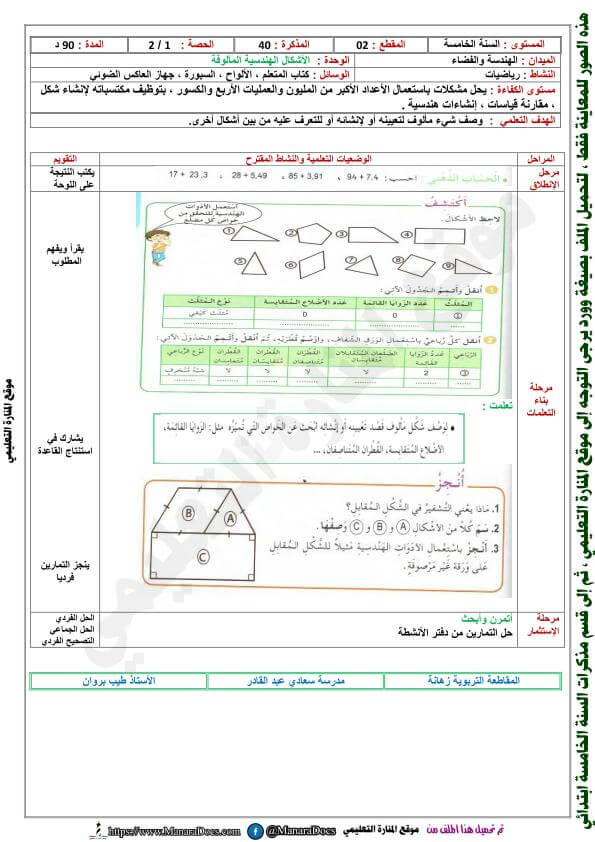 المستوى : السنة الخامسة المقطع : 02 المذكرة : 40 الحصة : 1 / 2 المدة : 90 د
الميدان : الهندسة والفضاء الوحدة : الأشكال الهندسية المألوفة
النشاط : رياضيات الوسائل : كتاب المتعلم ، الألواح ، السبورة ، جهاز العاكس الضوئي
مستوى الكفاءة : يحل مشكلات باستعمال الأعداد الأكبر من المليون والعمليات الأربع والكسور ، بتوظيف مكتسباته لإنشاء شكل
، مقارنة قياسات ، إنشاءات هندسية .
الهدف التعلمي : وصف شيء مألوف لتعيينه أو لإنشائه أو للتعرف عليه من بين أشكال أخرى.
المراحل الوضعيات التعلمية والنشاط المقترح التقويم
مرحلة الإنطلاق
• الْحِسَابُ الذِّهْنِيُّ : احسب : 7,4 + 94 ، 3,91 + 85 ، 5,49 + 28 ، 3, 23 + 17
يكتب النتيجة على اللوحة
أَكْتَشِفُ
استعمل الأدوات الهندسية للتحقق من خواص كل مضلع
لاحظ الأشكال.
1 2 3 4
5 6 7 8 9
يقرأ ويفهم المطلوب
1 أنقل وأتمم الجدول الآتي :
المثلث عدد الزوايا القائمة عدد الأضلاع المتقايسة نوع المثلث
① 0 0 مثلث كيفي
2 أنقل كل رباعي باستعمال الورق الشفاف، وارسم قطريه، ثم أنقل وأتمم الجدول الآتي :
الرباعي عدد الزوايا القائمة الضلعان المتقابلان متقايسان القطران متقايسان القطران متناصفان القطران متعامدان نوع الرباعي
③ 2 لا لا لا لا شبه منحرف
مرحلة بناء التعلمات
تعلمت :
• لوصف شكل مألوف قصد تعيينه أو إنشائه أبحث عن الخواص التي تميزه مثل: الزوايا القائمة،
الأضلاع المتقايسة، القطران المتناصفان، ...إلخ.
يشارك في استنتاج القاعدة
أُنْجِزُ
1. ماذا يعني التشفير في الشكل المقابل؟
2. سم كلا من الأشكال A و B و C وصفها.
3. أنجز باستعمال الأدوات الهندسية مثيلا للشكل المقابل
على ورقة غير مرصوفة.
B A
C
ينجز التمارين فرديا
مرحلة الإستثمار
أتمرن وأبحث
حل التمارين من دفتر الأنشطة
الحل الفردي
الحل الجماعي
التصحيح الفردي
المقاطعة التربوية زهانة مدرسة سعادي عبد القادر الأستاذ طيب بروان
تم تحميل هذا الملف من موقع المنارة التعليمي @ManaraDocs https://www.ManaraDocs.com
موقع المنارة التعليمي
هذه الصور للمعاينة فقط ، لتحميل الملف بصيغة وورد يرجى التوجه إلى موقع المنارة التعليمي ، ثم إلى قسم مذكرات السنة الخامسة ابتدائي
موقع المنارة التعليمي